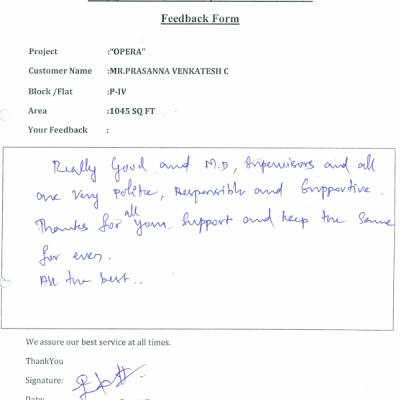 Feedback Form
Project :"OPERA"
Customer Name :MR.PRASANNA VENKATESH C
Block /Flat :P-IV
Area :1045 SQ FT
Your Feedback :
Really Good and M.D, Supervisors and all
are very polite, Responsible and Supportive.
Thanks for all your support and keep the same
for ever.
All the best..
We assure our best service at all times.
ThankYou
Signature:
Date: